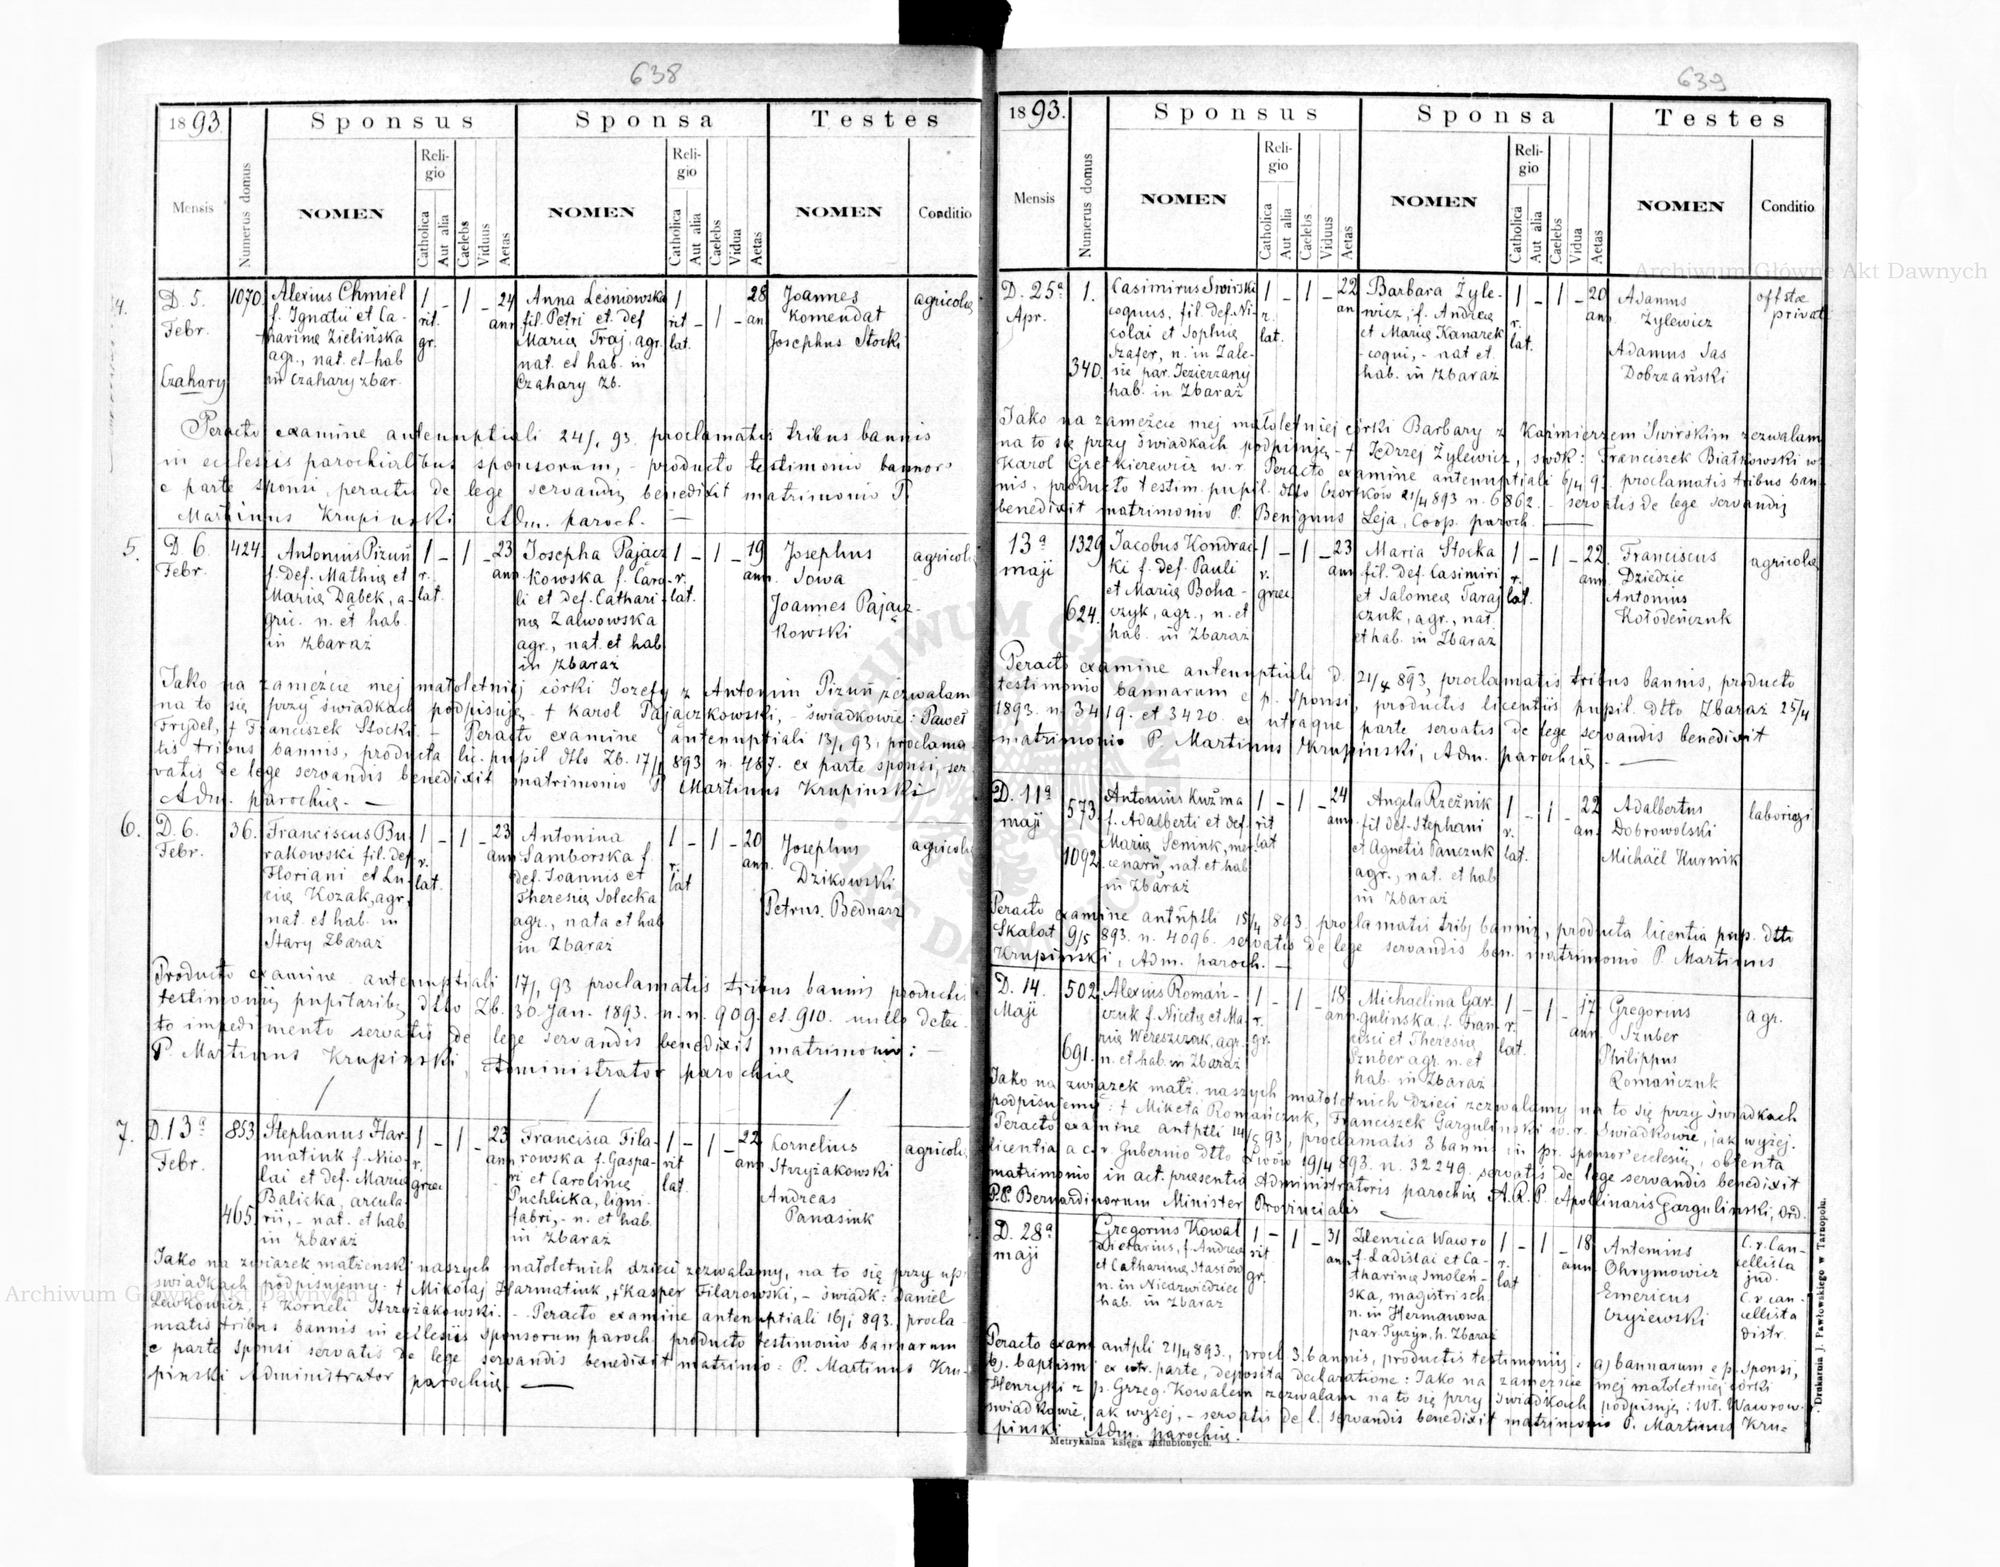 638
1893.
Sponsus
Sponsa
Testes
Mensis
Numerus domus
NOMEN
Religio
Catholica
Aut alia
Caelebs
Viduus
Aetas
NOMEN
Religio
Catholica
Aut alia
Caelebs
Vidua
Aetas
NOMEN
Conditio
4.
D. 5.
Febr.
Czahary
1070
Alexius Chmiel
f. Ignatii et Ca-
tharinæ Zielińska
agr., nat. et hab
in Czahary zbar.
1
rit.
gr.
-
1
-
24
ann
Anna Leśniowska
fil. Petri et def
Mariæ Traj, agr.
nat. et hab. in
Czahary Zb.
1
rit
lat.
-
1
-
28
an
Joannes
Komendat
Josephus Stocki
agricolæ
Peracto examine antenuptiali 24/1 93. proclamatis tribus bannis
in ecclesiis parochialibus sponsorum, - producto testimonio bannor
e parte sponsi peractis de lege servandis benedixit matrimonio P.
Martinus Krupinski Adm. paroch. —
5.
D. 6.
Febr.
424
Antonius Pizuń
f. def. Mathiæ et
Mariæ Dąbek, a-
gric. n. et hab.
in Zbaraż
1
r.
lat.
-
1
-
23
ann
Josepha Pającz
kowska f. Caro-
li et def. Cathari-
næ Zalwowska
agr., nat. et hab
in Zbaraż
1
r.
lat.
-
1
-
19
ann.
Josephus
Sowa
Joannes Pającz-
kowski
agricolæ
Jako na zamęźcie mej małoletniej córki Jozefy z Antonim Pizuń zezwalam
na to się przy świadkach podpisuję. + Karol Pajączkowski, - świadkowie: Paweł
Frydel, + Franciszek Stocki. - Peracto examine antenuptiali 13/1 93, proclama-
tis tribus bannis, producta lic. pupil dtto Zb. 17/1 893 n. 487. ex parte sponsi, ser-
vatis de lege servandis benedixit matrimonio P. Martinus Krupinski
Adm. parochiæ. —
6.
D. 6.
Febr.
36.
Franciscus Bu
rakowski fil. def
Floriani et Lu-
ciæ Kozak, agr,
nat. et hab. in
Stary Zbaraż
1
r.
lat.
-
1
-
23
ann
Antonina
Samborska f.
def. Joannis et
Theresiæ Solecka
agr., nata et hab
in Zbaraż
1
r.
lat
-
1
-
20
ann.
Josephus
Dzikowski
Petrus. Bednarz
agricolæ
Producto examine antenuptiali 17/1 93 proclamatis tribus bannis productis
testimoniis pupilaribus dtto Zb. 30 Jan. 1893. n.n. 909. et 910. nullo detec-
to impedimento servatis de lege servandis benedixit matrimonio: —
P. Martinus Krupinski, Administrator parochiæ
7.
D. 13ª
Febr.
853
465
Stephanus Har-
matiuk f. Nico-
lai et def. Mariæ
Balicka, arcula-
rii, - nat. et hab
in Zbaraż
1
r.
græc
-
1
-
23
ann
Francisca Fila-
rowska f. Gaspa-
ri et Carolinæ
Puchlicka, ligni-
fabri, - n. et hab.
in Zbaraż
1
rit
lat.
-
1
-
22
ann
Cornelius
Strzyżakowski
Andreas
Panasiuk
agricolæ
Jako na związek małżenski naszych małoletnich dzieci zezwalamy, na to się przy
świadkach podpisujemy: + Mikołaj Harmatiuk, + Kasper Filarowski, - świadk: Daniel
Lewkowicz, + Korneli Strzyżakowski. - Peracto examine antenuptiali 16/1 893. procla-
matis tribus bannis in ecclesiis sponsorum paroch. producto testimonio bannarum
e parte sponsi servatis de lege servandis benedixit matrimio: P. Martinus Kru-
pinski Administrator parochiæ. —
639
1893.
Sponsus
Sponsa
Testes
Mensis
Numerus domus
NOMEN
Religio
Catholica
Aut alia
Caelebs
Viduus
Aetas
NOMEN
Religio
Catholica
Aut alia
Caelebs
Vidua
Aetas
NOMEN
Conditio
D. 25ª
Apr.
1.
340.
Casimirus Swirski
coquus, fil. def. Ni-
colai et Sophiæ
Szafer, n. in Zale-
sie par. Jezierzany
hab. in Zbaraż
1
r.
lat.
-
1
-
22
an
Barbara Żyle-
wicz, f. Andreæ
et Mariæ Kanarek
- coqui, - nat et.
hab. in Zbaraż
1
r.
lat.
-
1
-
20
ann
Adamus
Zylewicz
Adamus Jas
Dobrzański
privat
Jako na zamęźcie mej małoletniej córki Barbary z Kaźmierzem Świrskim zezwalam
na to się przy świadkach podpisuję - + Jędrzej Żylewicz, swdk: Franciszek Białkowski
Karol Gretkierewicz w. r. Peracto examine antenuptiali 6/4 93. proclamatis tribus ban-
nis. producto testim. pupil. dtto Czortków 21/4 893 n. 6862. - servatis de lege servandis
benedixit matrimonio P. Benignus Leja, Coop. paroch. —
13ª
maji
1329
624.
Jacobus Kondrac-
ki f. def. Pauli
et Mariæ Boha-
czyk, agr., n. et
hab. in Zbaraż
1
r.
græc
-
1
-
23
ann
Maria Stocka
fil. def. Casimiri
et Salomeæ Taraj
czuk, agr., nat.
et hab. in Zbaraż
1
r.
lat.
-
1
-
22
ann
Franciscus
Dziedzic
Antonius
Kołodeńczuk
agricolæ
Peracto examine antenuptiali D. 21/4 893, proclamatis tribus bannis, producto
testimonio bannarum e p. sponsi, productis licentiis pupil. dtto Zbaraż 25/4
1893. n. 3419. et 3420. ex utraque parte servatis de lege servandis benedixit
matrimonio P. Martinus Krupinski, Adm. parochiæ. —
D. 11ª
maji
573.
1092.
Antonius Kuźma
f. Adalberti et def.
Mariæ Seniuk, mer-
cenarii, nat. et hab
in Zbaraż
1
rit
lat
-
1
-
24
ann
Angela Rzeźnik
fil def. Stephani
et Agnetis Panczuk
agr., nat. et hab
in Zbaraż
1
r.
lat.
-
1
-
22
an.
Adalbertus
Dobrowolski
Michaël Kurnik
Peracto examine antnptli 15/4 893. proclamatis trib. bannis, producta licentia pup. dtto
Skalat 9/5 893. n. 4096. servatis de lege servandis ben. matrimonio P. Martinus
Krupinski, Adm. paroch. —
D. 14.
Maji
502
691.
Alexius Romań-
czuk f. Nicetæ et Ma-
riæ Wereszczak, agr.
n. et hab. in Zbaraż
1
r.
gr.
-
1
-
18
ann
Michaelina Gar-
gulinska, f. Fran-
cisci et Theresiæ
Szuber agr. n. et
hab. in Zbaraż
1
r.
lat.
-
1
-
17
ann
Gregorius
Szuber
Philippus
Romańczuk
agr.
Jako na związek małż. naszych małoletnich dzieci zezwalamy na to się przy świadkach
podpisujemy: + Miketa Romańczuk, Franciszek Gargulinski w. r. Świadkowie, jak wyżej.
Peracto examine antptli 14/5 93, proclamatis 3 bannis in pr. sponsor ecclesiis, obtenta
licentia a c. r. Gubernio dtto Lwów 19/4 893. n. 32249. servatis de lege servandis benedixit
matrimonio in act. præsentia Administratoris parochiæ A. R. P. Apollinaris Gargulinski, Ord.
P.P. Bernardinorum Minister Provincialis —
D. 28ª
maji
Gregorius Kowal
Dietarius, f. Andreæ
et Catharinæ Stasiów
n. in Niedzwiedziec
hab. in Zbaraż
1
rit
gr.
-
1
-
31
ann
Henrica Wawro
f. Ladislai et Ca-
tharinæ Smoleń-
ska, magistri sch.
n. in Hermanowa
par. Tyczyn, h. Zbaraż
1
r.
lat
-
1
-
18
ann
Antemius
Ohrymowicz
Emericus
Czyżewski
C. r. Can-
cellista
jud.
C. r. can-
cellista
distr.
Peracto exam. antpli 21/4 893., procl 3. bannis, productis testimoniis: a) bannarum e p. sponsi,
b). baptismi ex utr. parte, deposita declaratione: Jako na zamęzcie mej małoletniej córki
Henryki z p. Grzeg. Kowalem zezwalam na to się przy świadkach podpisuję: Wł. Wawrow.
świadkowie, jak wyżej, - servatis de l. servandis benedixit matrimonio P. Martinus Kru-
pinski Adm. parochiæ.
Metrykalna księga zaślubionych.
Drukarnia J. Pawłowskiego w Tarnopolu.
Archiwum Główne Akt Dawnych
Archiwum Główne Akt Dawnych
ARCHIWUM GŁÓWNE AKT DAWNYCH